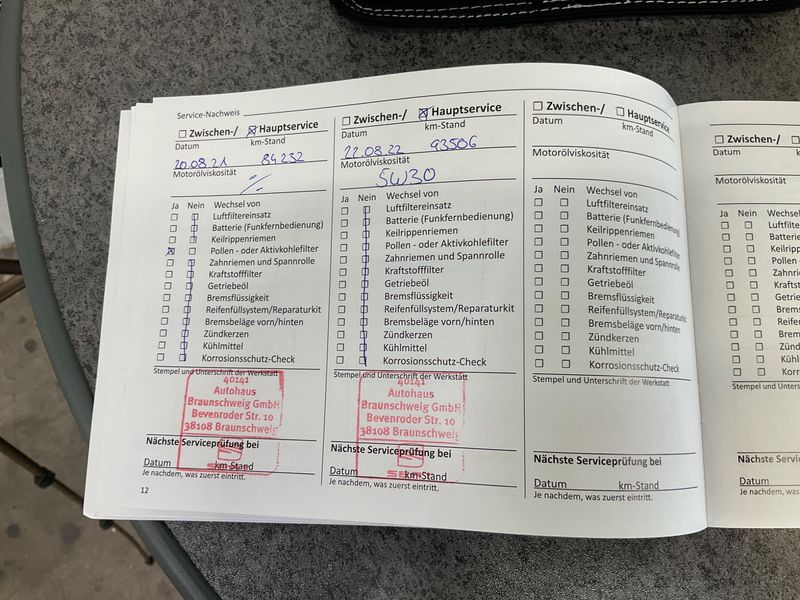 Service-Nachweis
☐ Zwischen-/ ☒ Hauptservice
Datum km-Stand
20.08.21 84232
Motorölviskosität
Ja Nein Wechsel von
Luftfiltereinsatz
Batterie (Funkfernbedienung)
Keilrippenriemen
Pollen - oder Aktivkohlefilter
Zahnriemen und Spannrolle
Kraftstofffilter
Getriebeöl
Bremsflüssigkeit
Reifenfüllsystem/Reparaturkit
Bremsbeläge vorn/hinten
Zündkerzen
Kühlmittel
Korrosionsschutz-Check
Stempel und Unterschrift der Werkstatt
40141
Autohaus
Braunschweig GmbH
Bevenroder Str. 10
38108 Braunschweig
Nächste Serviceprüfung bei
SEAT
Datum km-Stand
Je nachdem, was zuerst eintritt.
12
☐ Zwischen-/ ☒ Hauptservice
Datum km-Stand
22.08.22 93506
Motorölviskosität
5W30
Ja Nein Wechsel von
Luftfiltereinsatz
Batterie (Funkfernbedienung)
Keilrippenriemen
Pollen - oder Aktivkohlefilter
Zahnriemen und Spannrolle
Kraftstofffilter
Getriebeöl
Bremsflüssigkeit
Reifenfüllsystem/Reparaturkit
Bremsbeläge vorn/hinten
Zündkerzen
Kühlmittel
Korrosionsschutz-Check
Stempel und Unterschrift der Werkstatt
40141
Autohaus
Braunschweig GmbH
Bevenroder Str. 10
38108 Braunschweig
Nächste Serviceprüfung bei
SEAT
Datum km-Stand
Je nachdem, was zuerst eintritt.
☐ Zwischen-/ ☐ Hauptservice
Datum km-Stand
Motorölviskosität
Ja Nein Wechsel von
Luftfiltereinsatz
Batterie (Funkfernbedienung)
Keilrippenriemen
Pollen - oder Aktivkohlefilter
Zahnriemen und Spannrolle
Kraftstofffilter
Getriebeöl
Bremsflüssigkeit
Reifenfüllsystem/Reparaturkit
Bremsbeläge vorn/hinten
Zündkerzen
Kühlmittel
Korrosionsschutz-Check
Stempel und Unterschrift der Werkstatt
Nächste Serviceprüfung bei
Datum km-Stand
Je nachdem, was zuerst eintritt.
☐ Zwischen-/
Datum km
Motorölviskosität
Ja Nein Wechsel
Luftfilte
Batterie
Keilripp
Pollen -
Zahnrie
Kraftst
Getrieb
Bremsf
Reifenf
Brems
Zündke
Kühlm
Korr
Stempel und Unterschrift
Nächste Serviceprüf
Datum
Je nachdem, was zuerst